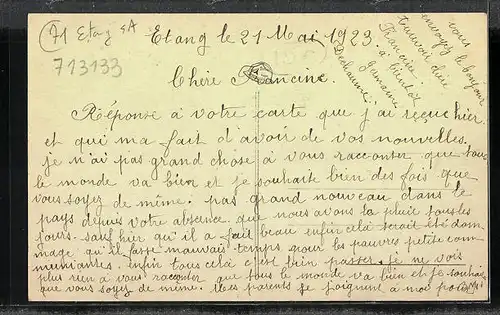 71 Etang s/A
713133
Etang le 21 Mai 1923
Chère Francine.
Réponse à votre carte que j'ai reçue hier
et qui ma fait d'avoir de vos nouvelles.
je n'ai pas grand chose à vous raconter que tous
le monde va bien et je souhaite bien des fois que
vous soyez de même. pas grand nouveau dans le
pays depuis votre absence que nous avons la pluie tous les
jours. sauf hier qu'il a fait beau enfin celà serait été dom-
mage qu'il fasse mauvais temps pour les pauvres petite com-
muniantes. enfin tous celà c'est bien passer. je ne vois
plus rien à vous raconter que tous le monde va bien et je souhaite
que vous soyez de même. Mes parents se joignent à moi pour
vous
envoyez le bonjour
Francine
à bientôt
Germaine
Dechaume